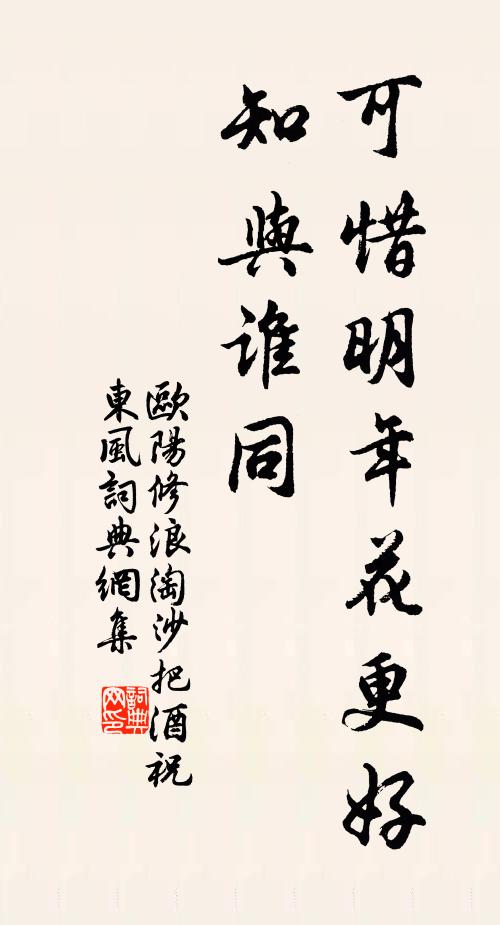 可惜明年花更好
知與誰同
歐陽修浪淘沙把酒祝
東風詞典網集
詞典
网印